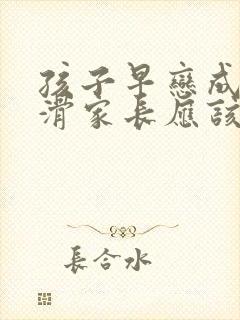 孩子早戀成
滑家長應該
長合水